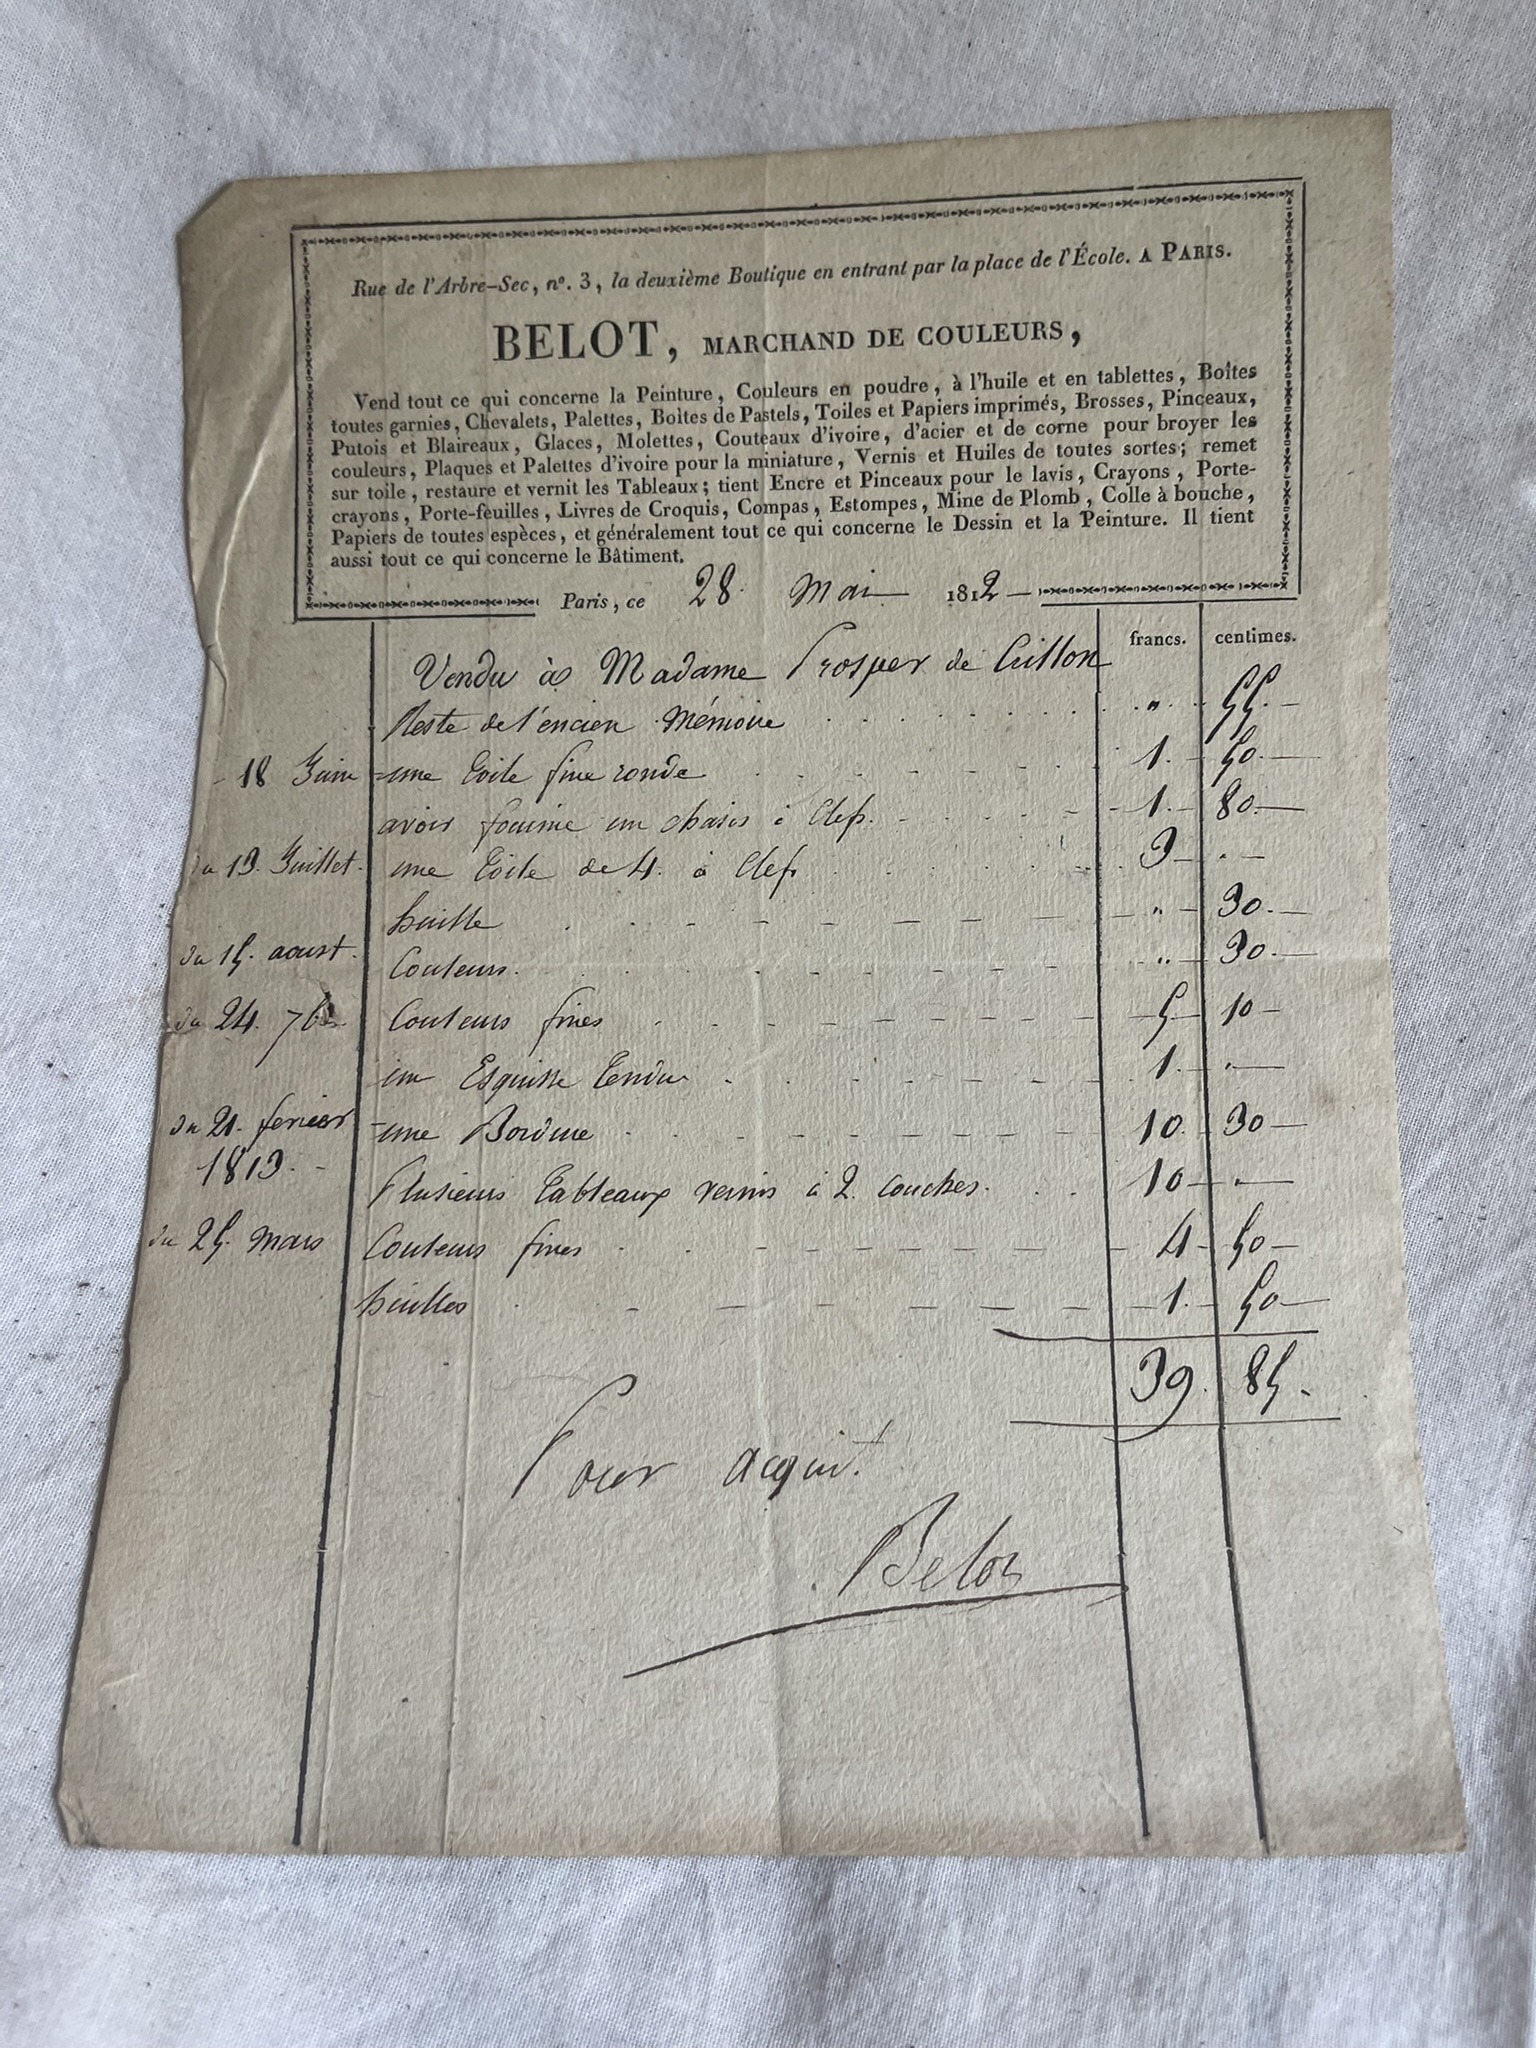 Rue de l'Arbre-Sec, n°. 3, la deuxième Boutique en entrant par la place de l'École. A PARIS.
BELOT, MARCHAND DE COULEURS,
Vend tout ce qui concerne la Peinture, Couleurs en poudre, à l'huile et en tablettes, Boîtes
toutes garnies, Chevalets, Palettes, Boîtes de Pastels, Toiles et Papiers imprimés, Brosses, Pinceaux,
Putois et Blaireaux, Glaces, Molettes, Couteaux d'ivoire, d'acier et de corne pour broyer les
couleurs, Plaques et Palettes d'ivoire pour la miniature, Vernis et Huiles de toutes sortes; remet
sur toile, restaure et vernit les Tableaux; tient Encre et Pinceaux pour le lavis, Crayons, Porte-
crayons, Porte-feuilles, Livres de Croquis, Compas, Estompes, Mine de Plomb, Colle à bouche,
Papiers de toutes espèces, et généralement tout ce qui concerne le Dessin et la Peinture. Il tient
aussi tout ce qui concerne le Bâtiment.
Paris, ce 28 Mai 1812
francs. centimes.
Vendu à Madame Prosper de Crillon
Reste de l'encien Mémoire " 55
18 Juin une toile fine ronde 1. 50
avoir fournie un chasis à Clefs. 1. 80
du 13. Juillet. une toile de 4. à Clefs 3
huille " 30.
du 15. aoust. Couleurs. " 30.
du 24. 7bre Couleurs fines 5 10
un Esquisse tendu 1.
du 21. fevrier une Bordure 10. 30
1813. Plusieurs tableaux vernis à 2. couches. 10
du 25. Mars Couleurs fines 4 50
huilles 1. 50
39. 85.
Pour acquit.
Belot